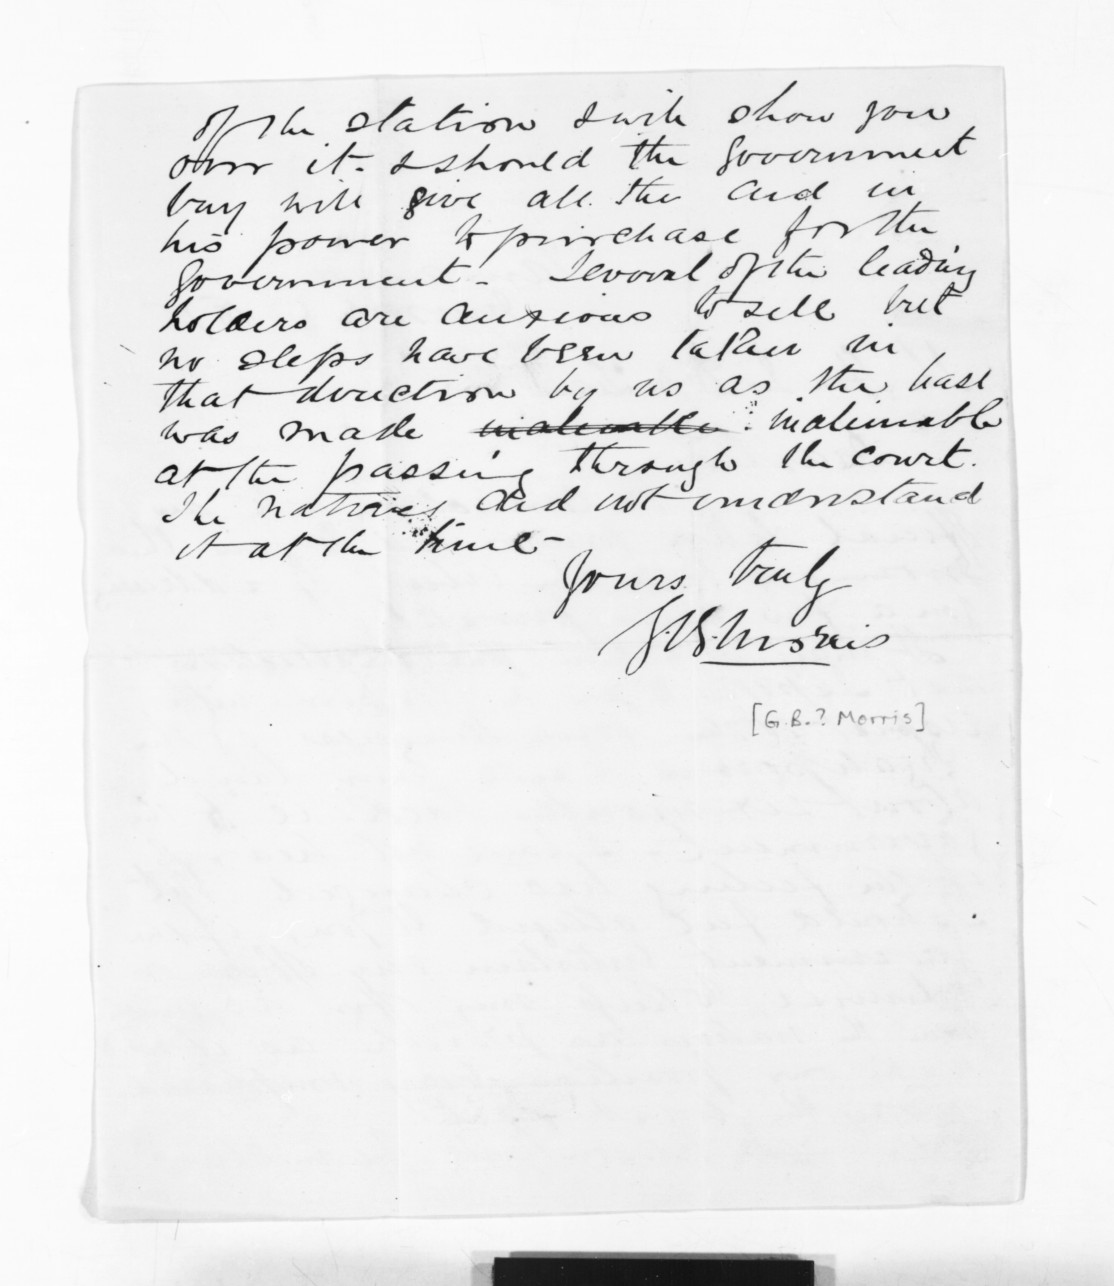 of the station & will show you
over it - & should the Government
buy will give all the aid in
his power to purchase for the
Government - Several of the leading
holders are anxious to sell but
no steps have been taken in
that direction by us as the
was made inalienable
at the passing through the court.
The natives did not understand
it at the time -
Yours truly
G.B. Morris
[G.B.? Morris]